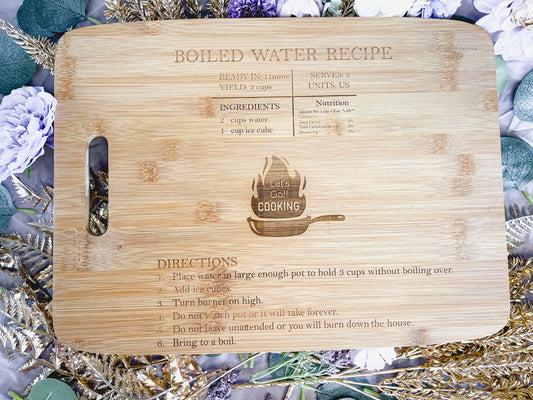 BOILED WATER RECIPE
READY IN: 11mins
YIELD: 3 cups
SERVES: 3
UNITS: US
INGREDIENTS
2 cups water
1 cup ice cube
Nutrition
Let's
Go!!
COOKING
DIRECTIONS
1. Place water in large enough pot to hold 3 cups without boiling over.
2. Add ice cubes.
3. Turn burner on high.
4. Do not watch pot or it will take forever.
5. Do not leave unattended or you will burn down the house.
6. Bring to a boil.